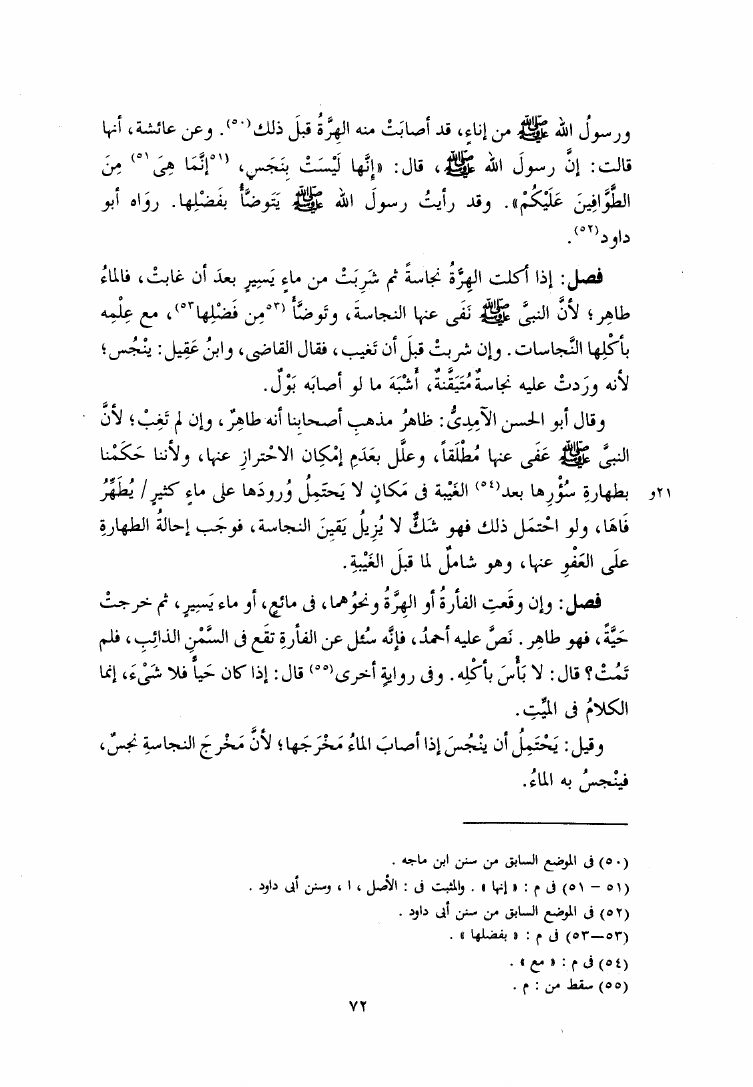 ورسولُ الله ﷺ من إناءٍ، قد أصابَتْ منه الهِرَّةُ قبلَ ذلك(٥٠). وعن عائشة، أنها
قالت: إنَّ رسولَ الله ﷺ، قال: «إنَّها لَيْسَتْ بِنَجَسٍ، (٥١إنَّمَا هِىَ٥١) مِنَ
الطَّوَّافِينَ عَلَيْكُمْ». وقد رأيتُ رسولَ الله ﷺ يَتَوضَّأُ بفَضْلِها. روَاه أبو
داود(٥٢).
فصل: إذا أكلت الهِرَّةُ نجاسةً ثم شَرِبَتْ من ماءٍ يَسِيرٍ بعدَ أن غابتْ، فالماءُ
طاهِر؛ لأنَّ النبىَّ ﷺ نَفَى عنها النجاسةَ، وتَوضَّأَ (٥٣مِن فَضْلِها٥٣)، مع عِلْمِه
بأكْلِها النَّجاسات. وإن شربتْ قبلَ أن تَغيب، فقال القاضى، وابنُ عَقِيل: ينْجُس؛
لأنه ورَدتْ عليه نجاسةٌ مُتَيَقَّنةٌ، أَشْبَهَ ما لو أصابَه بَوْلٌ.
وقال أبو الحسن الآمِدِىُّ: ظاهرُ مذهبِ أصحابِنا أنه طاهِرٌ، وإن لم تَغِبْ؛ لأنَّ
النبىَّ ﷺ عَفَى عنها مُطْلَقاً، وعلَّل بعَدَمِ إمْكانِ الاحْترازِ عنها، ولأننا حَكَمْنا
بطهارةِ سُؤْرِها بعد(٥٤) الغَيْبة فى مَكانٍ لا يَحتَمِلُ وُرودَها على ماءٍ كثيرٍ / يُطَهِّرُ ٢١و
فَاهَا، ولو احْتمَل ذلك فهو شَكٌّ لا يُزِيلُ يَقينَ النجاسة، فوجَب إحالةُ الطهارةِ
علَى العَفْوِ عنها، وهو شاملٌ لما قبلَ الغَيْبةِ.
فصل: وإن وقَعتِ الفأرةُ أو الهِرَّةُ ونحوُهما، فى مائعٍ، أو ماء يَسِيرٍ، ثم خرجتْ
حَيَّةً، فهو طاهِر. نَصَّ عليه أحمدُ، فإنَّه سُئل عن الفأرةِ تقَع فى السَّمْنِ الذائِبِ، فلم
تَمُتْ؟ قال: لا بَأْسَ بأكْلِه. وفى روايةٍ أخرى(٥٥) قال: إذا كان حَياً فلا شَىْءَ، إنما
الكلامُ فى الميِّتِ.
وقيل: يَحْتَمِلُ أن ينْجُسَ إذا أصابَ الماءُ مَخْرَجَها؛ لأنَّ مَخْرجَ النجاسةِ نجسٌ،
فينْجسُ به الماءُ.
(٥٠) فى الموضع السابق من سنن ابن ماجه .
(٥١ – ٥١) فى م : « إنها » . والمثبت فى : الأصل ، ا ، وسنن أبى داود .
(٥٢) فى الموضع السابق من سنن أبى داود .
(٥٣—٥٣) فى م : « بفضلها » .
(٥٤) فى م : « مع » .
(٥٥) سقط من : م .
٧٢